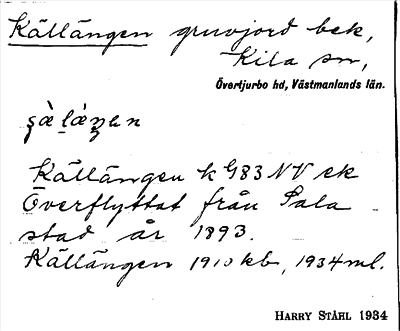 Källängen gruvjord bek,
Kila sn,
Övertjurbo hd, Västmanlands län.
Källängen k G83 NV ek
Överflyttat från Sala
stad år 1893.
Källängen 1910 kb, 1934 ml.
HARRY STÅHL 1934